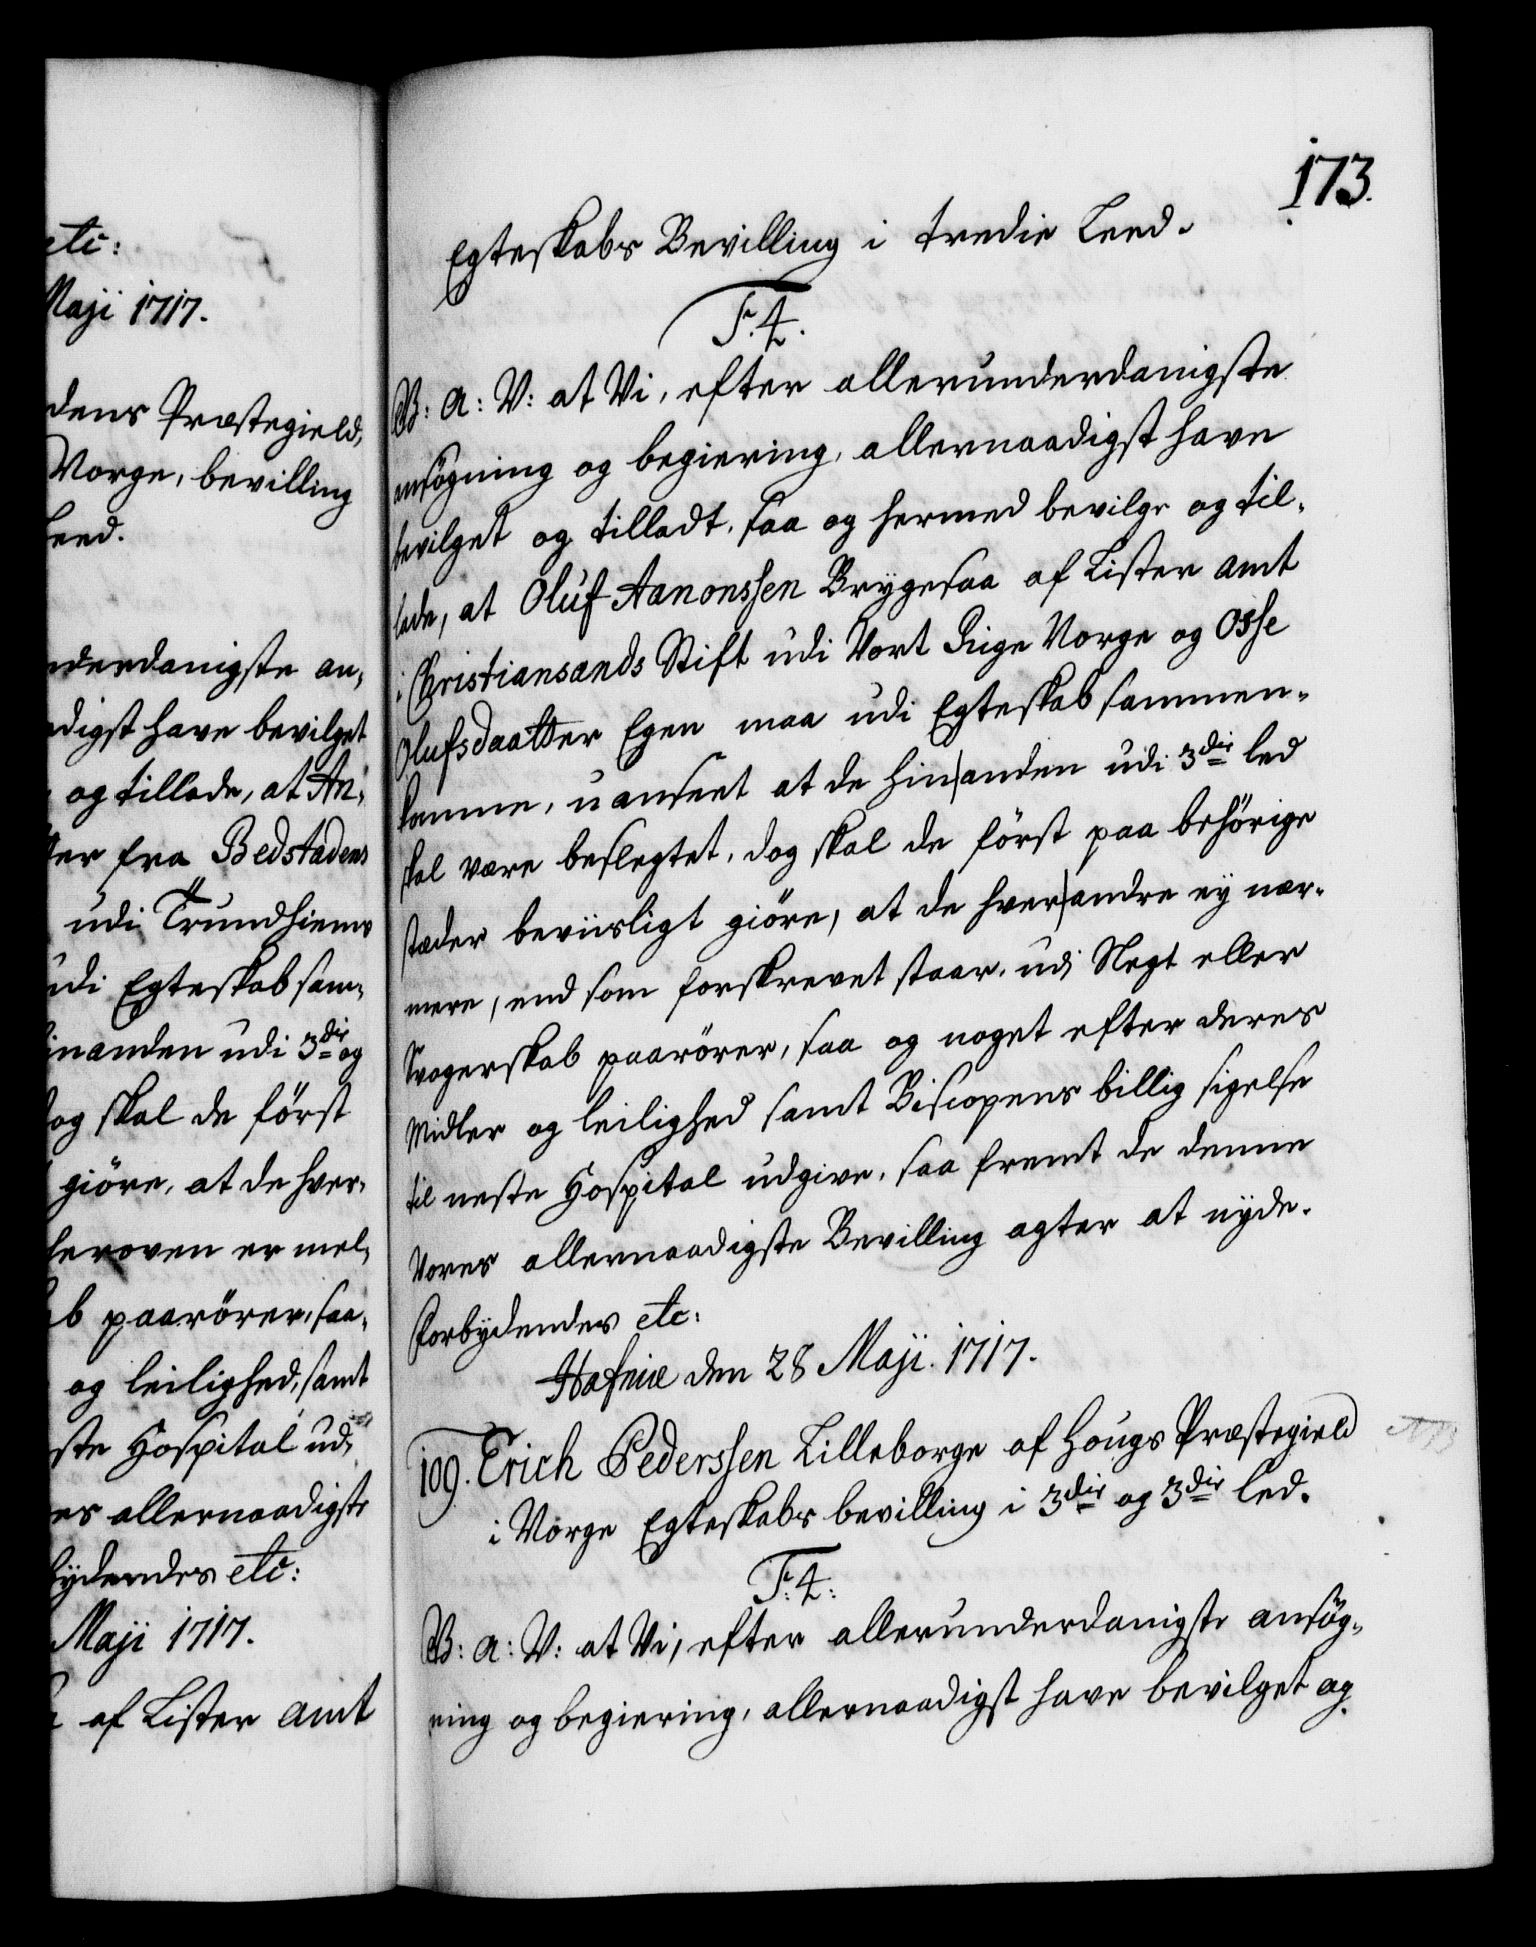 etc:
Maji 1717.
dens Præstegield,
Norge, bevilling
Leed.
nderdanigste an,
adigst have bevilget
og tillade, at An,
ter fra Bedstadens
udi Trundhiems
udi Egteskab sam,
hinanden udi 3die og
dog skal de först
giöre, at de hver,
heroven er mel,
ab paarörer, saa,
og leilighed, samt
ste Hospital ud,
es allernaadigste
bydendes etc:
Maji 1717.
af Lister Amt
173.
Egteskabs Bevilling i tredie Leed.
F. 4.
V: A: V: at Vi, efter allerunderdanigste
ansögning og begiering, allernaadigst have
bevilget og tilladt, saa og hermed bevilge og til,
lade, at Oluf Aanonssen Brygesaa af Lister Amt
i Christiansands Stift udi Vort Rige Norge og Osse
Olufsdaatter Egen maa udi Egteskab sammen,
komme, uanseet at de hin|anden udi 3die led
skal være beslegtet, dog skal de först paa behörige
stæder beviisligt giöre, at de hver|andre ey nær,
mere, end som forskrevet staar, udi Slegt eller
Svogerskab paarörer, saa og noget efter deres
Midler og leilighed samt Biscopens billig sigelse
til neste Hospital udgive, saa fremt de denne
Vores allernaadigste Bevilling agter at nyde.
Forbydendes etc:
Hafniæ den 28 Maji. 1717.
109. Erich Pederssen Lilleborge af Hougs Præstegield
i Norge Egteskabs bevilling i 3die og 3die led.
F: 4:
V: A: V: at Vi, efter allerunderdanigste ansög,
ning og begiering, allernaadigst have bevilget og